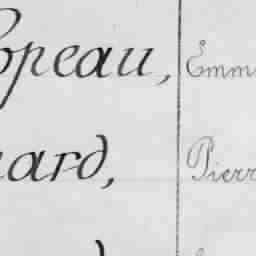 opeau, Emm
ard, Pierr